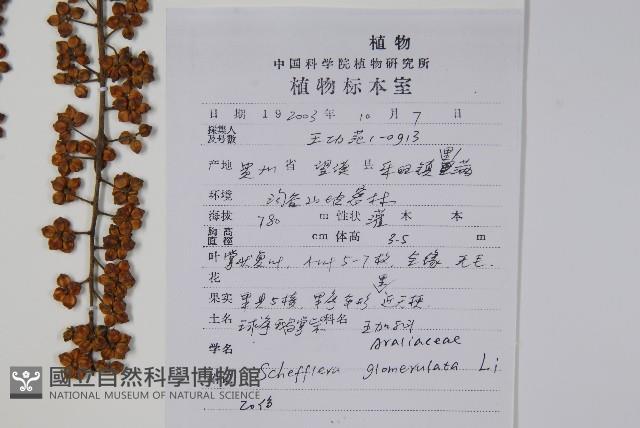 植 物
中国科学院植物研究所
植物标本室
日 期 19 2003 年 10 月 7 日
採集人
及号数 王功范 1-0913
产地 贵州 省 望谟 县 平田镇
环境 沟谷 密林
海拔 780 m 性状 灌 木 本
胸高
直徑 cm 体高 3.5 m
叶 掌状复叶，小叶5-7枚，全缘，无毛。
花
果实 果具5棱，近无梗
土名 科名 五加科
Araliaceae
学名
Schefflera glomerulata Li
20份
國立自然科學博物館
NATIONAL MUSEUM OF NATURAL SCIENCE